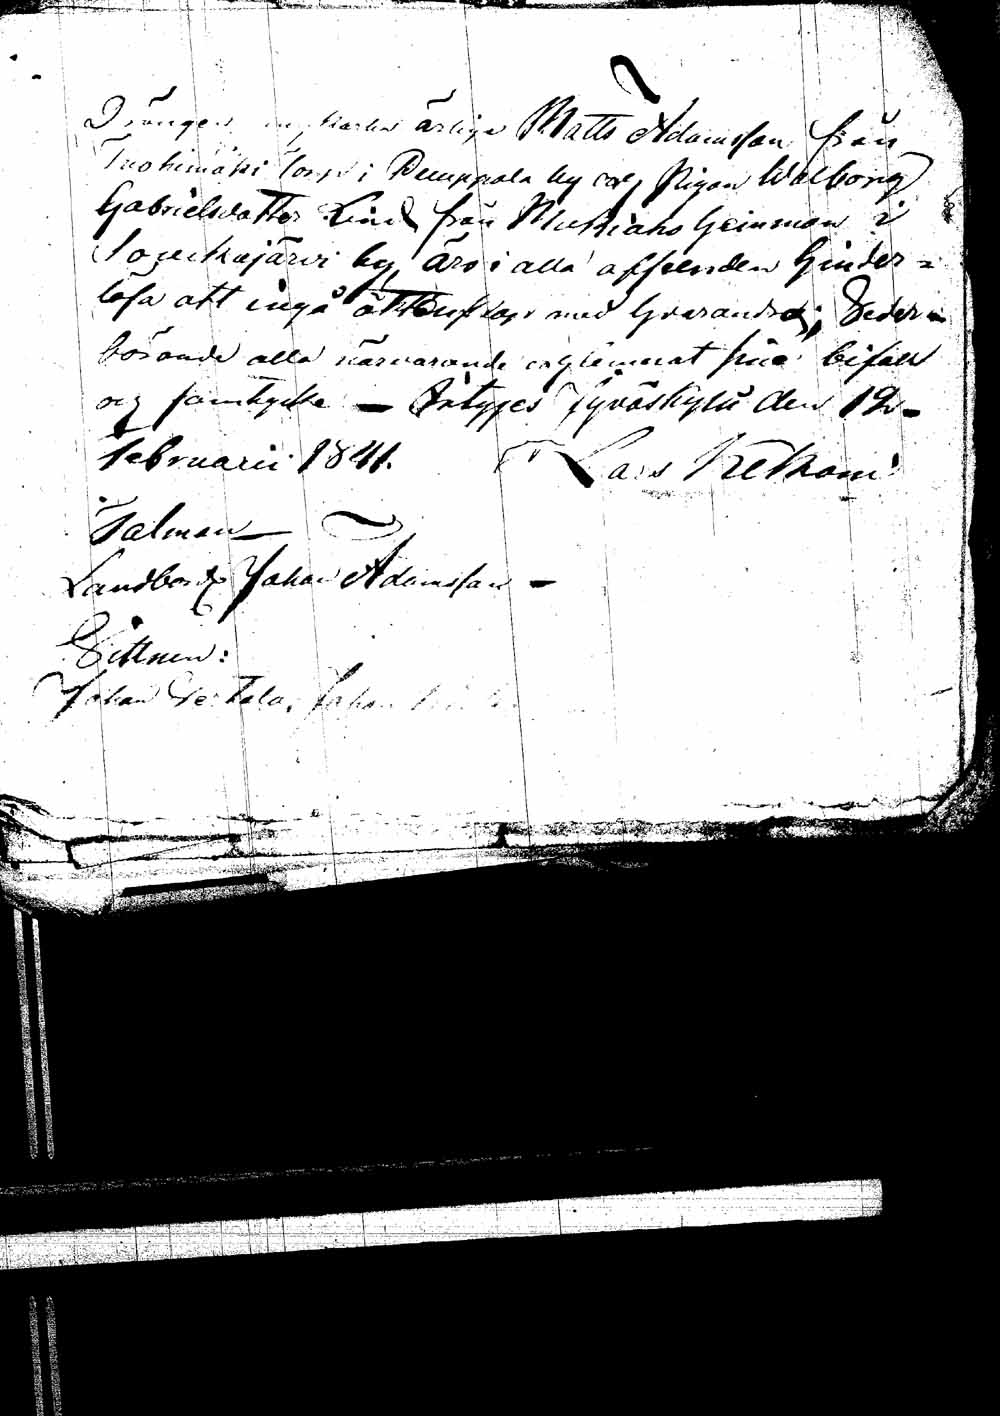 Drängen ungkarlen ärlige Matts Adamsson från
Tuohimäki torp i Pemppala by och Pigan Walborg
Gabrielsdotter Lind från Mukiaho hemman i
by äro i alla afseenden hinder=
lösa att ingå äktenskap med hvarandra; Veder=
börande alla närvarande och lemnat sitt bifall
och samtycke — Intyges Jyväskylä den 12
Februarii 1841. Lars
Talman —
Landbond Johan Adamsson —
Vittnen:
Johan Johan